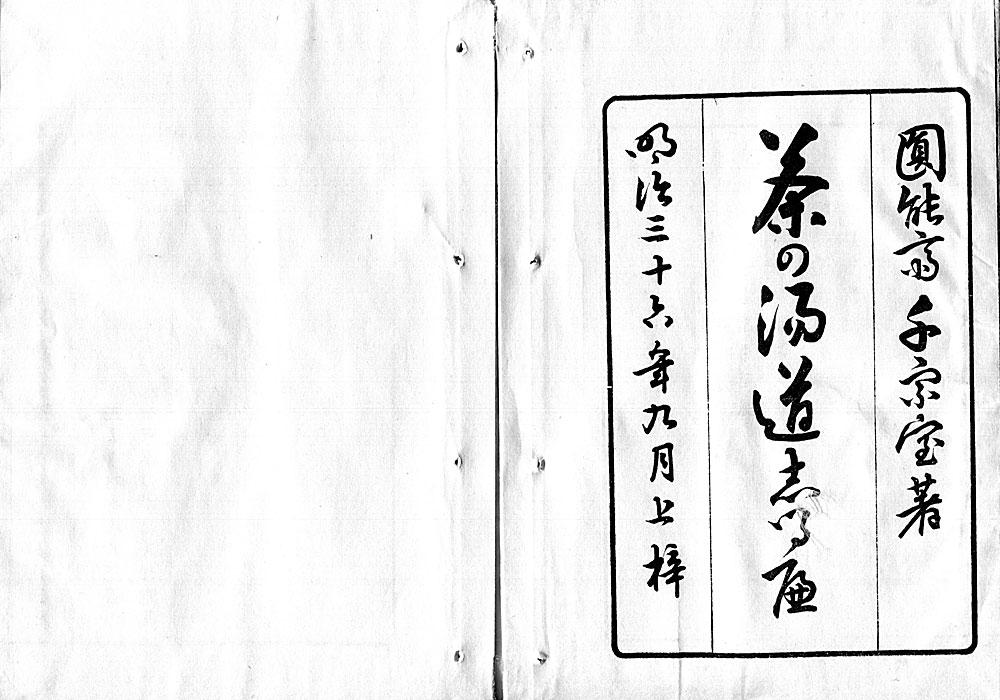 圓能斎 千宗室著
茶の湯道志る遍
明治三十六年九月上梓